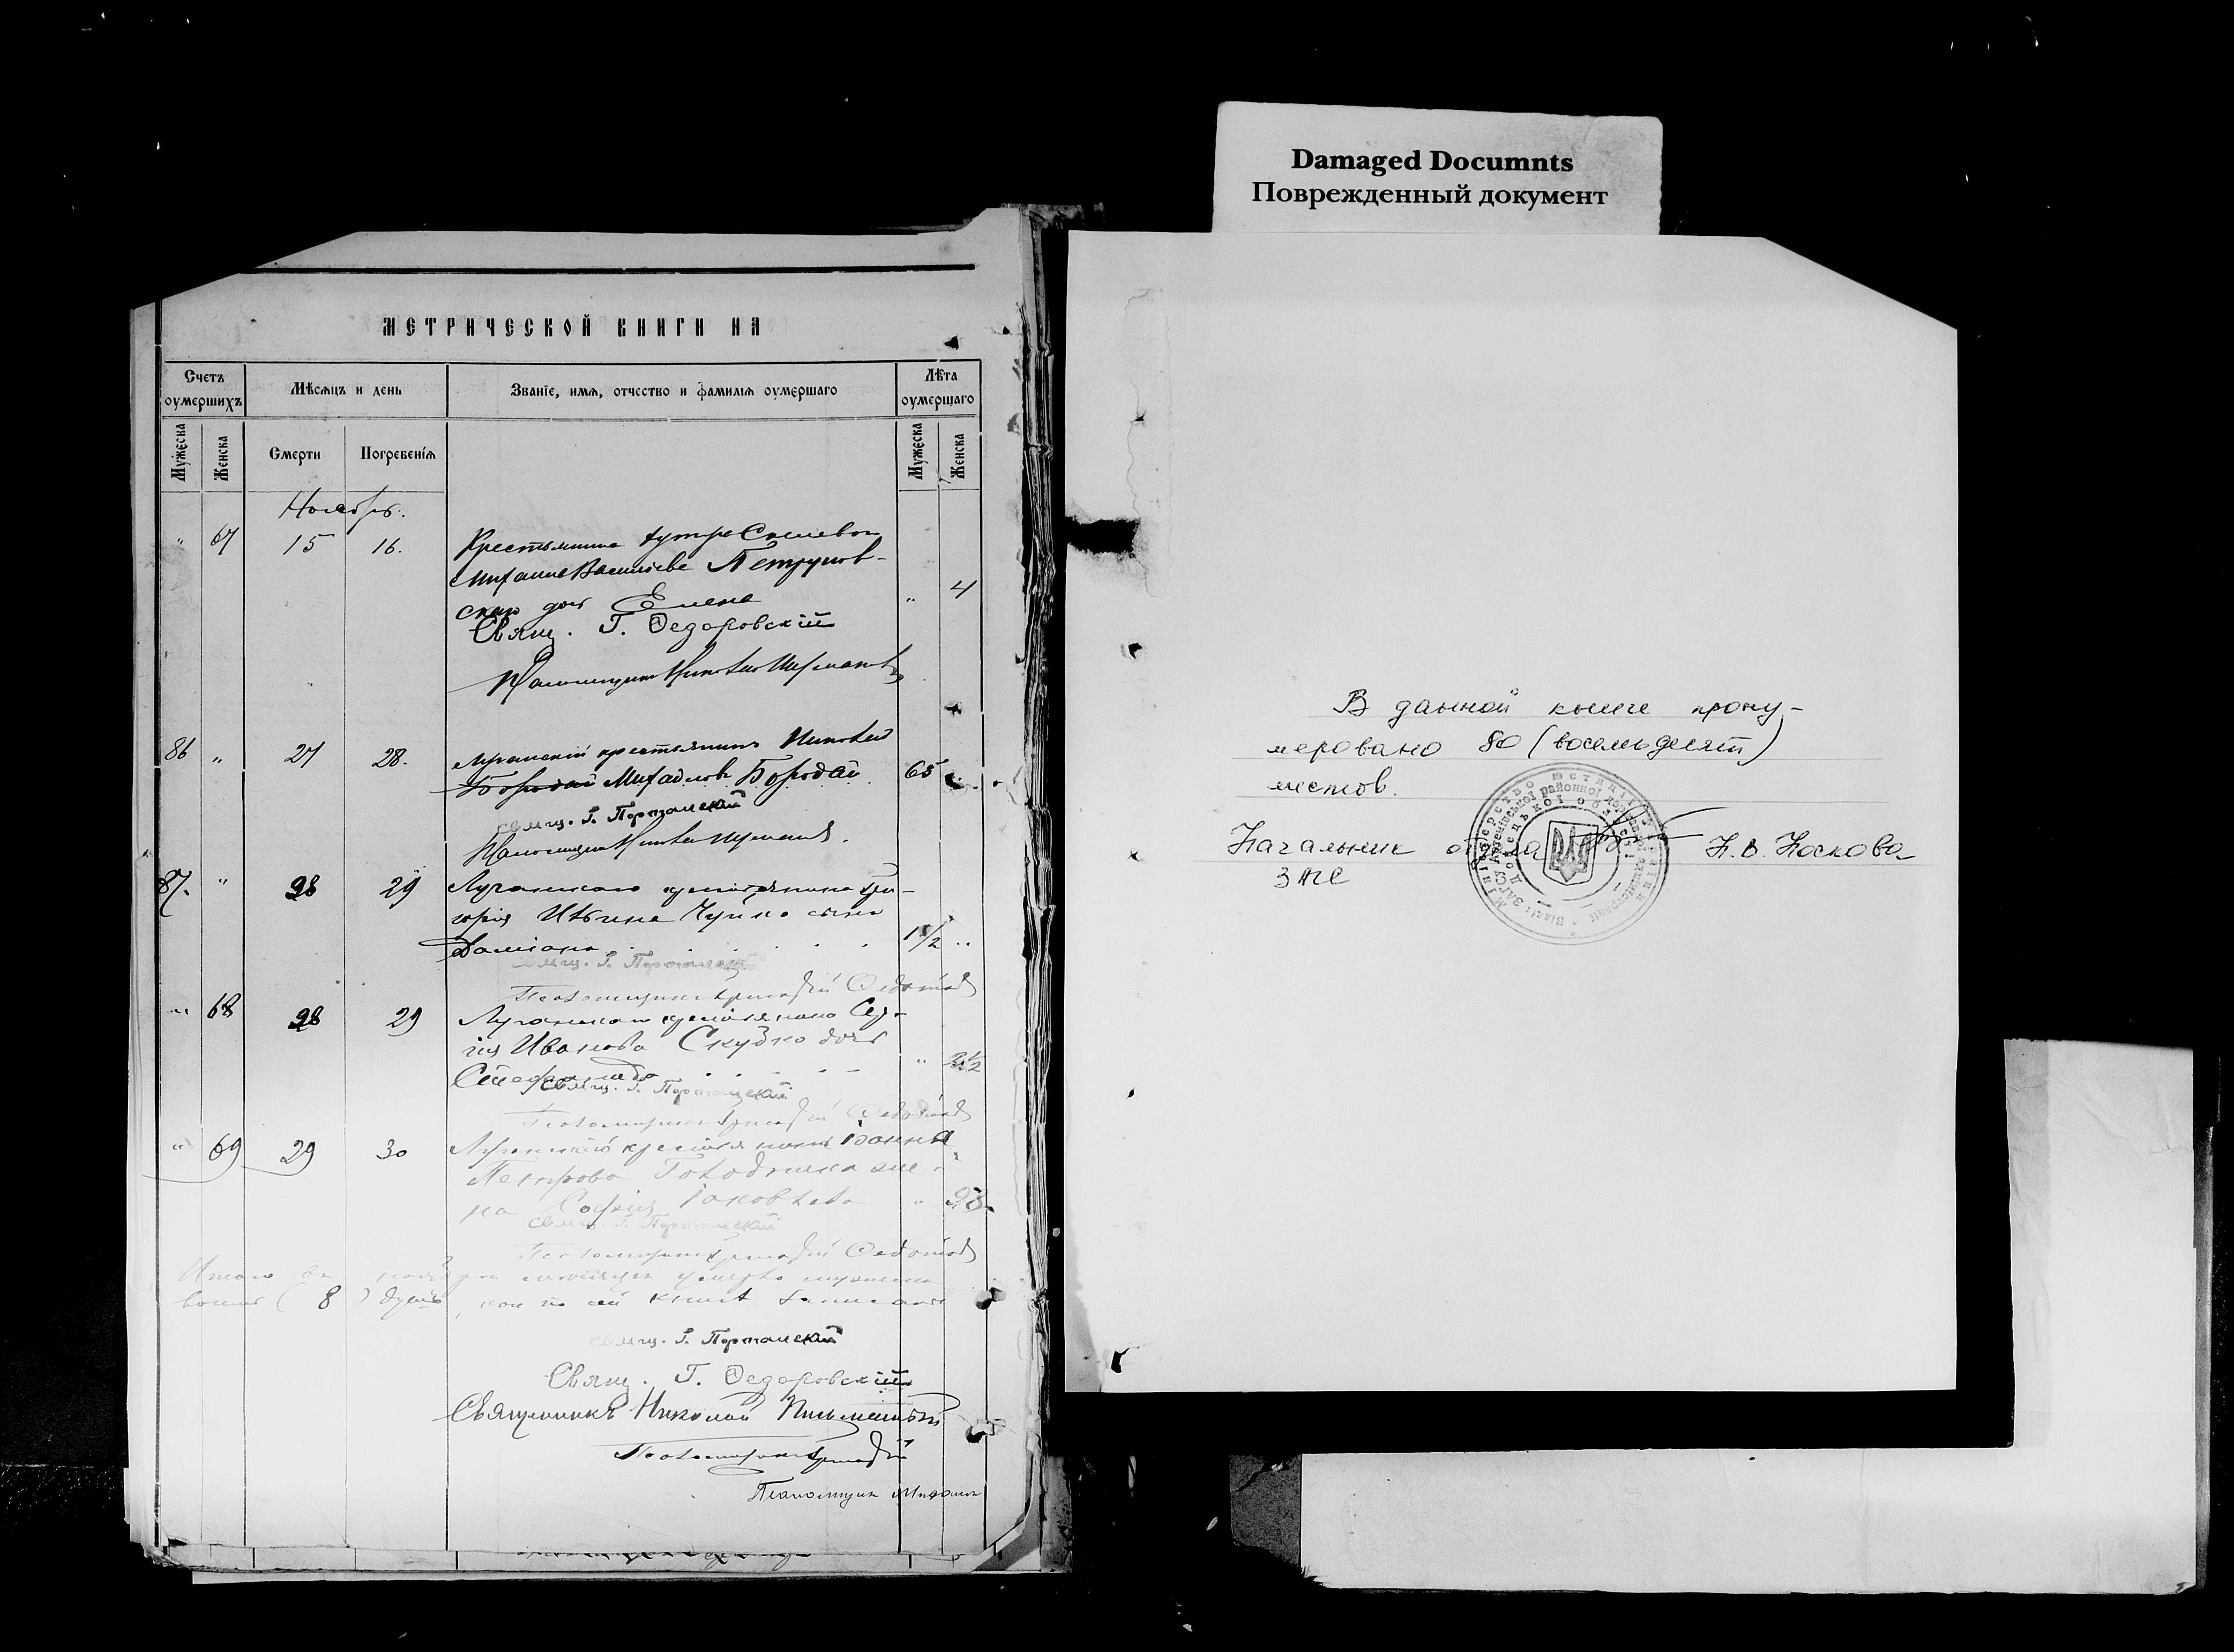 Damaged Documnts
Поврежденный документ
МЕТРИЧЕСКОЙ КНИГИ НА
Счетъ оумершихъ
Мѣсяцъ и день
Званїе, имѧ, отчество и фамилїѧ оумершаго
Лѣта оумершаго
Мужеска
Женска
Смерти
Погребенїѧ
Мужеска
Женска
Ноябрь.
" 67 15 16. Крестьянина хутора
Михаила Васильева Петрунов-
скаго дочь Елена " 4
Свящ. Г. Федоровскій
Псаломщикъ Николай
86 " 27 28. Луганскій крестьянинъ Николай
Бородай Михайловъ Бородай 65 "
Свящ. Г. Портанскій
Псаломщикъ Николай
87. " 28 29 Луганскаго крестьянина Гри-
горія Чуйко сына
Даміанъ 1 1/2 "
Свящ. Г. Портанскій
Псаломщикъ Аркадій Федотовъ
" 68 28 29 Луганскаго крестьянина Сер-
гія Иванова Скудко дочь
Стефанида " 2 1/2
Свящ. Г. Портанскій
Псаломщикъ Аркадій Федотовъ
" 69 29 30 Луганскаго крестьянина Іоанна
Петрова Голодника же-
на Софія Іаковлева " 23
Свящ. Г. Портанскій
Псаломщикъ Аркадій Федотовъ
Итого въ ноябрѣ мѣсяцѣ умерло мужеска
( 8 ) душъ, кои по сей книгѣ записаны
Свящ. Г. Портанскій
Свящ. Г. Федоровскій
Священникъ Николай
Псаломщикъ Аркадій
Псаломщик
В данной книге прону-
меровано 80 (восемьдесят)
листов.
Начальник отдела Н.В. Носкова
ЗАГС